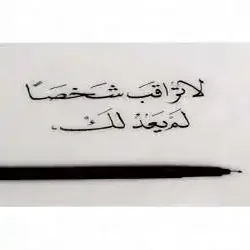 لا تراقب شَخصًا
لَم يَعُدْ لكَ.